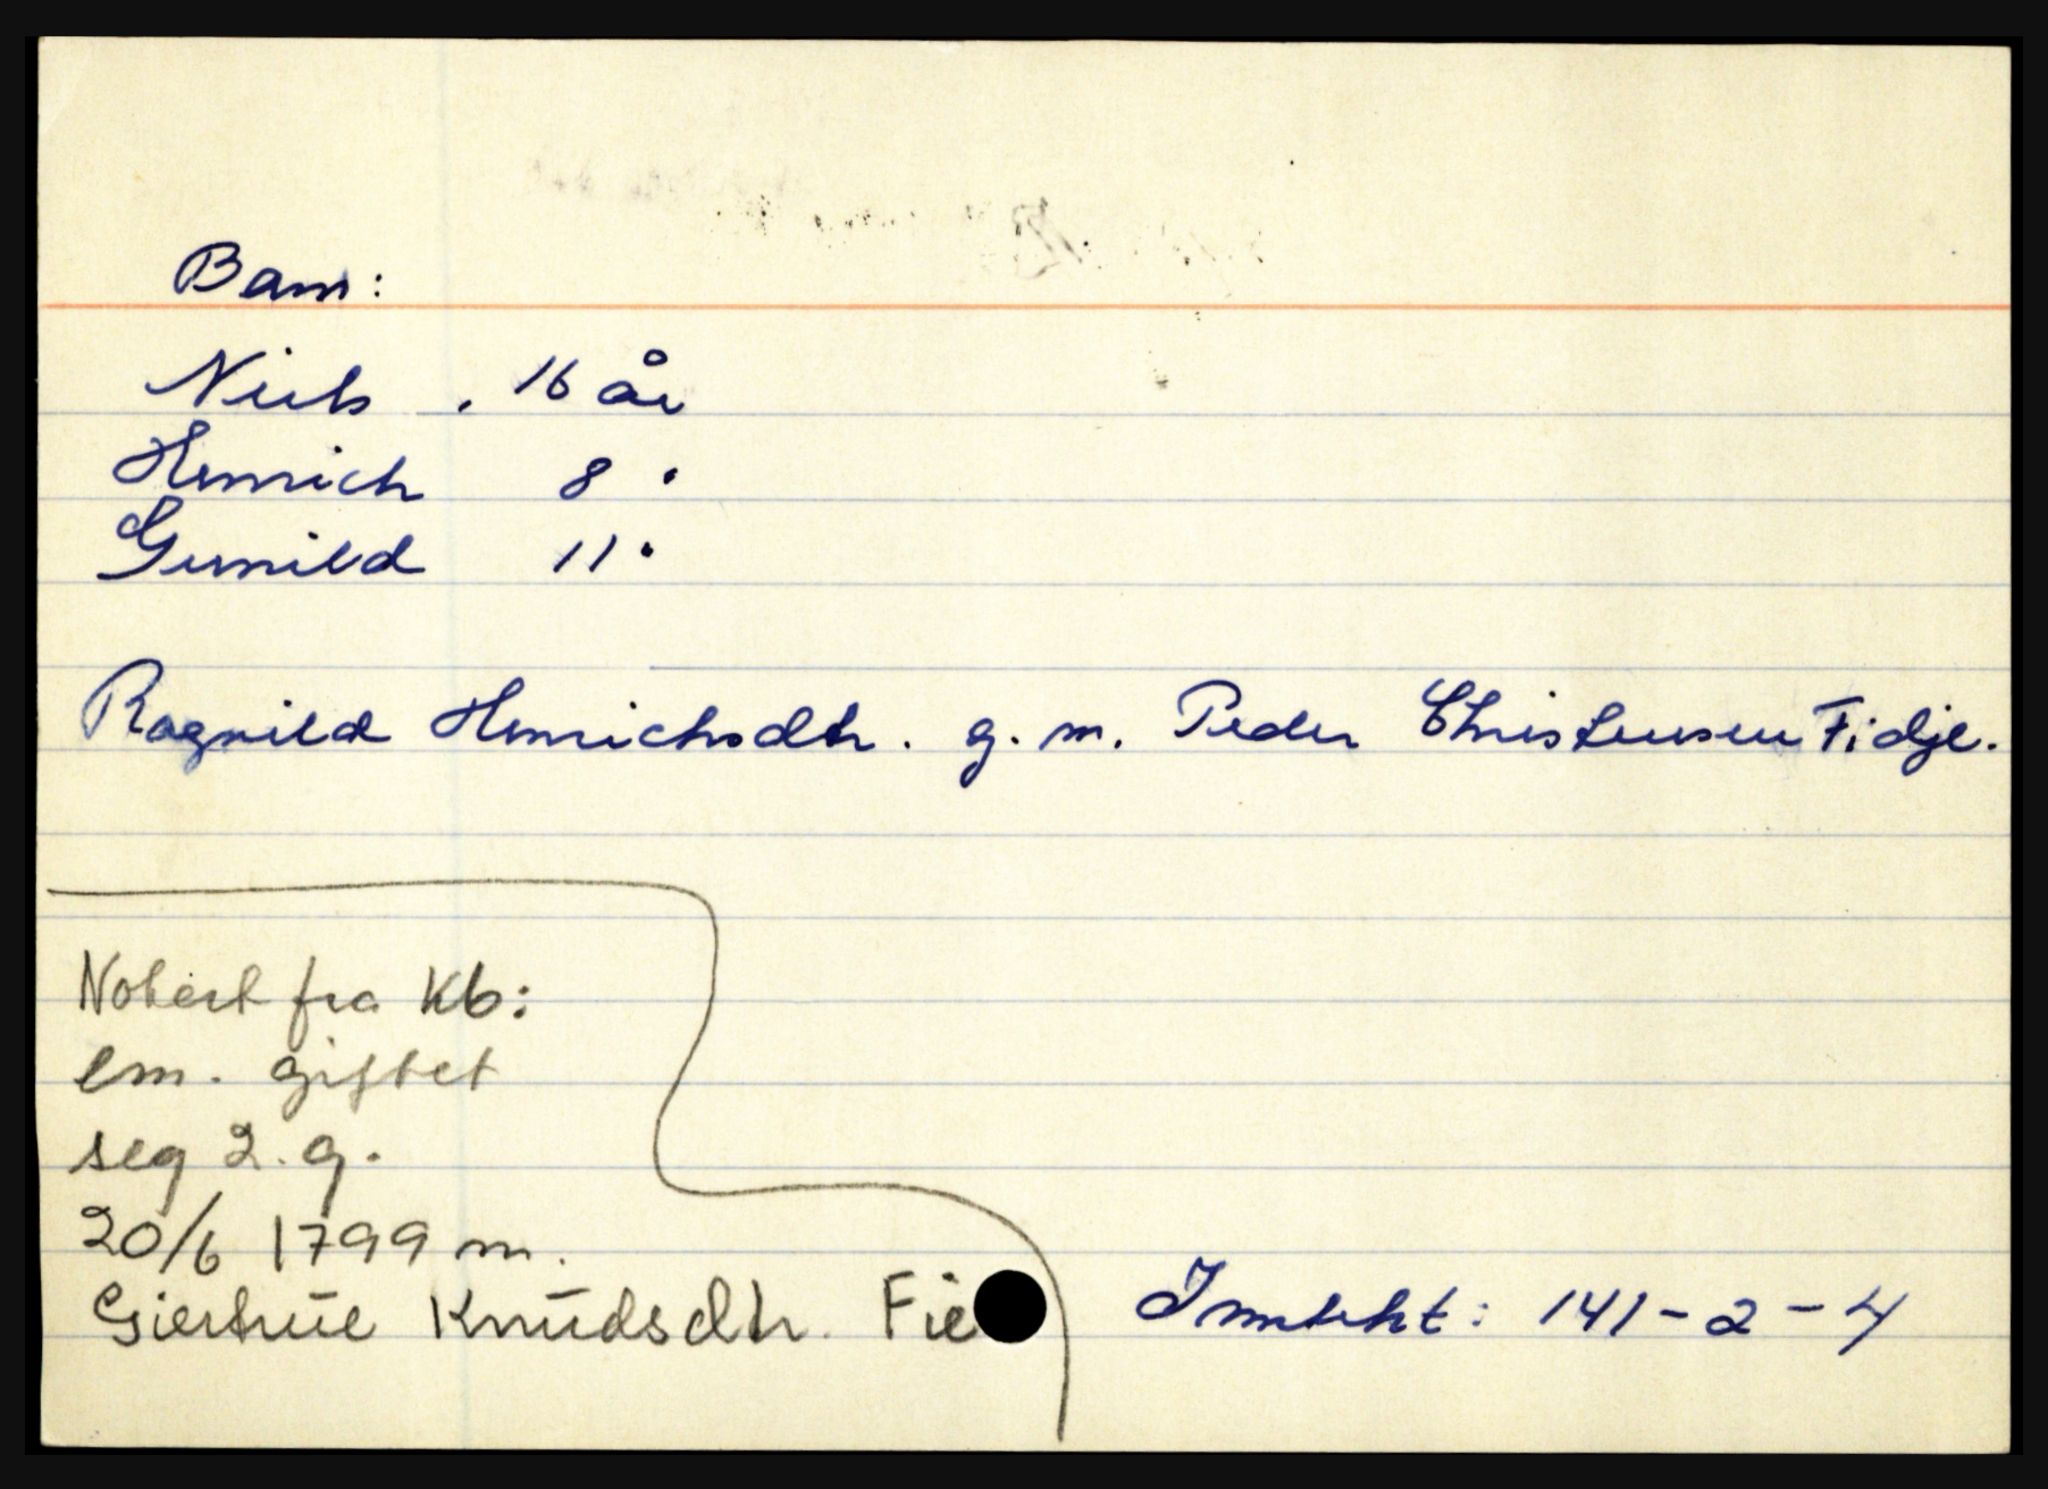 Barn:
Niels . 16 år
Henrich 8 "
Gunild 11 "
Ragnild Henrichsdtr. g. m. Peder Christensen Fidje.
Notert fra Kb:
em. giftet
seg 2. g.
20/6 1799 m.
Giertrue Knudsdtr. Fie
Inntekt: 141-2-4